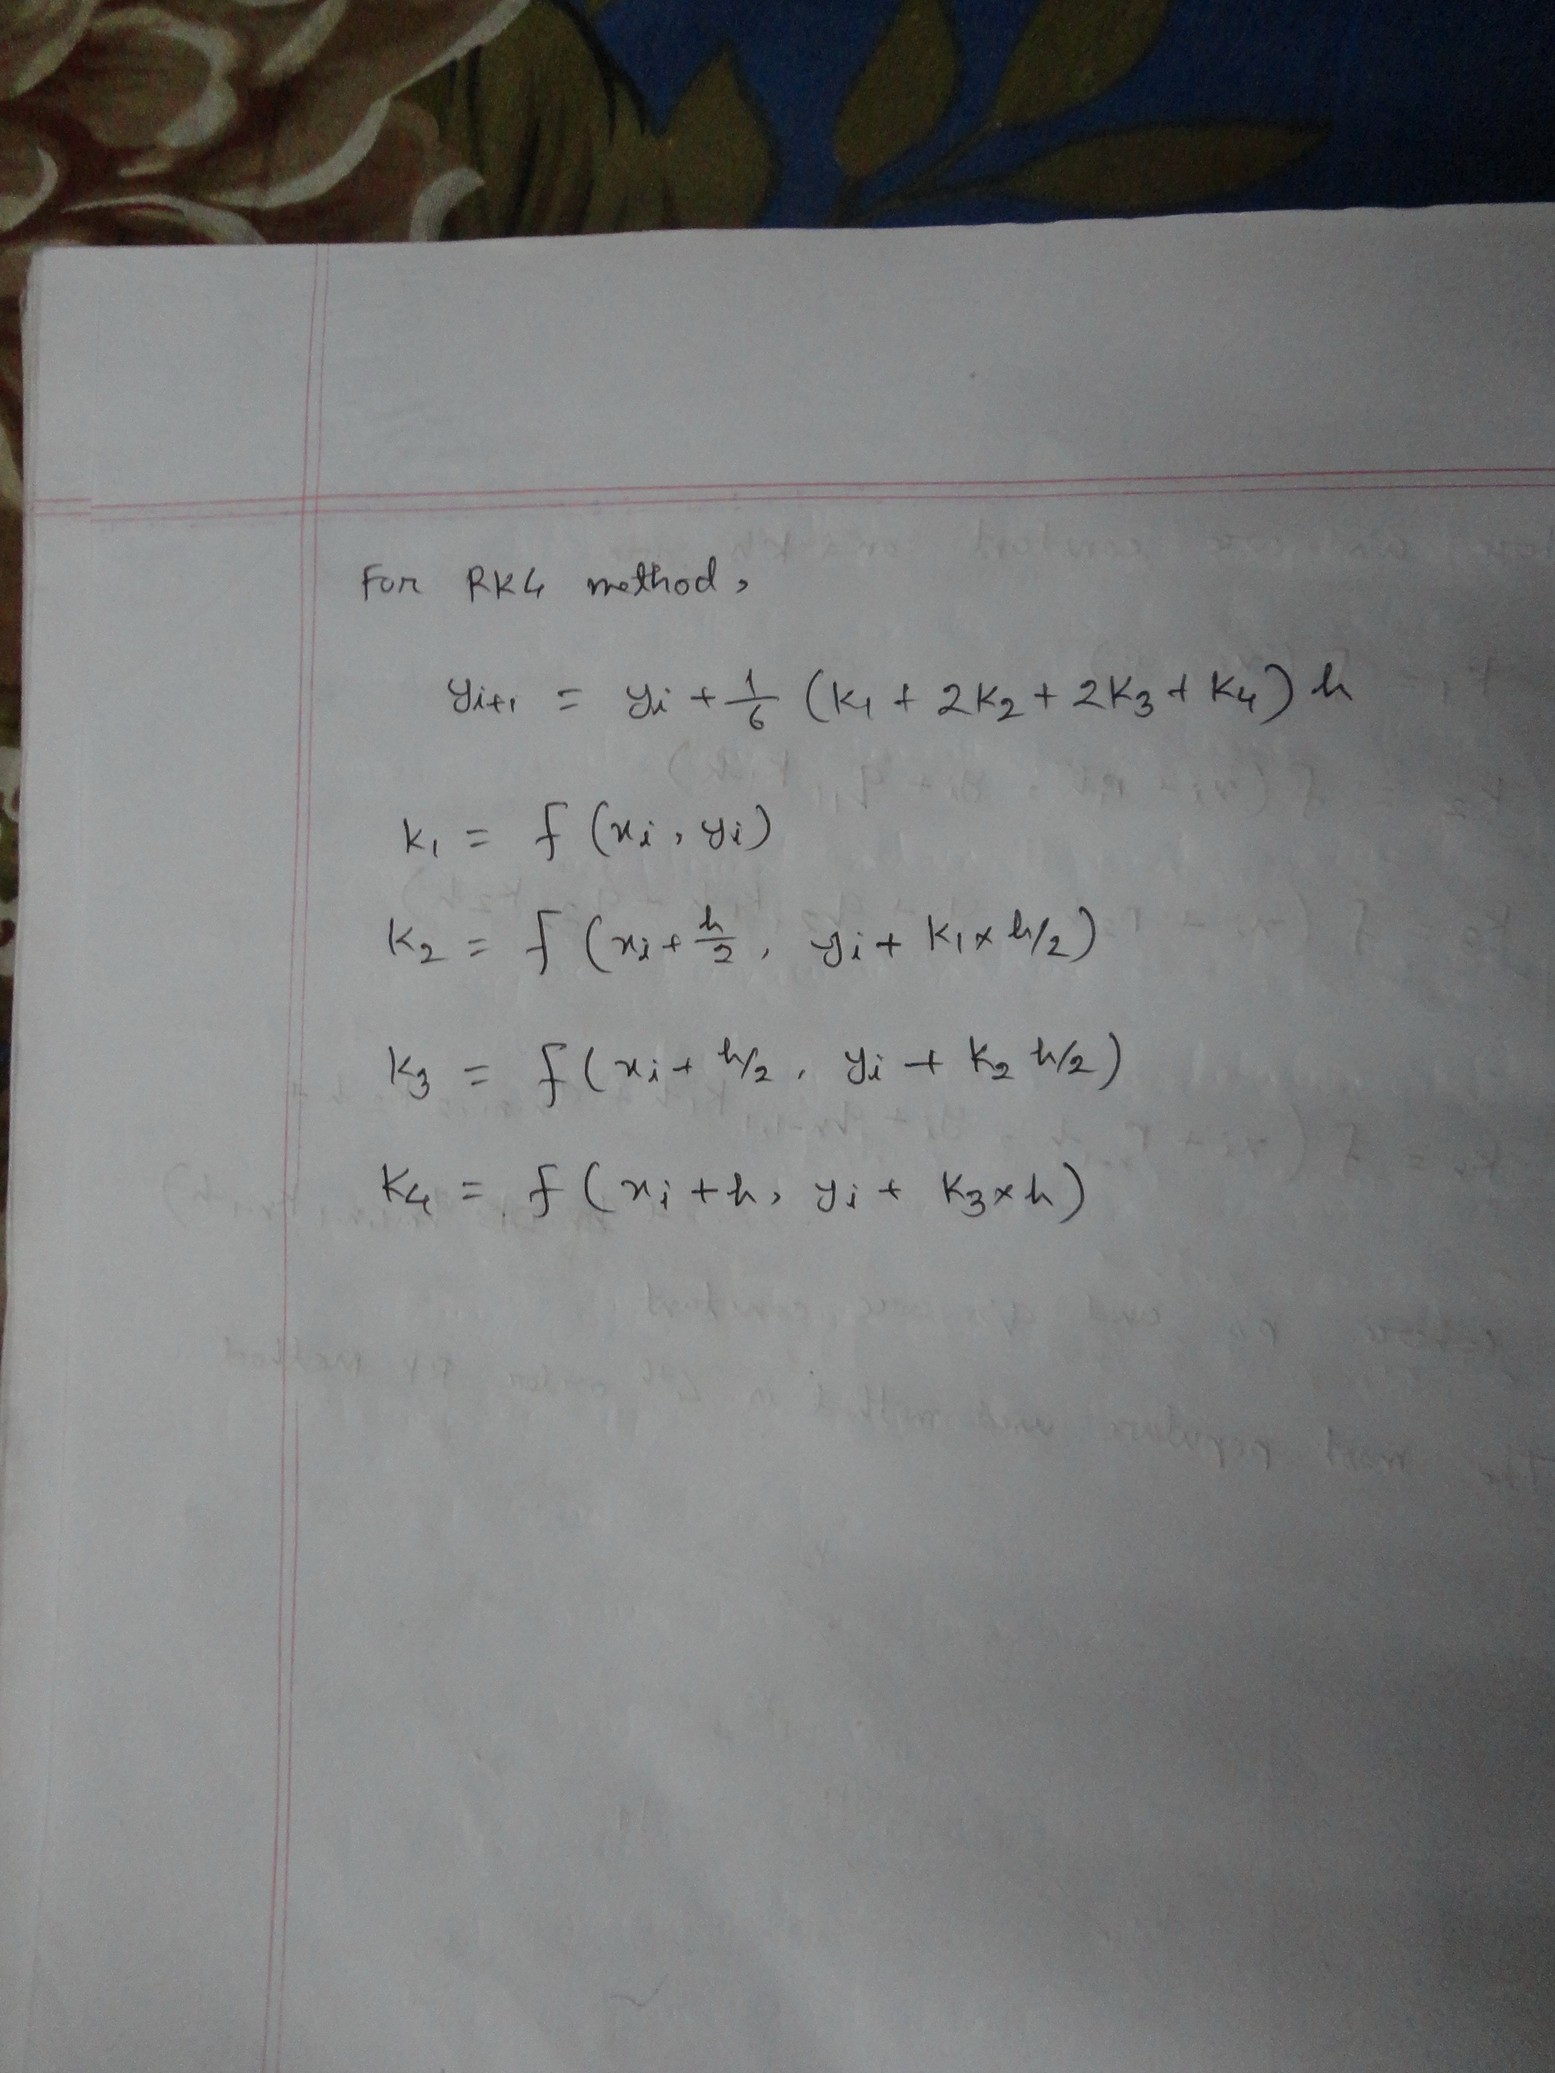 For RK4 method,
yi+1 = yi + 1/6 (K1 + 2K2 + 2K3 + K4) h
K1 = f (xi, yi)
K2 = f (xi + h/2, yi + K1 × h/2)
K3 = f (xi + h/2, yi + K2 h/2)
K4 = f (xi + h, yi + K3 × h)